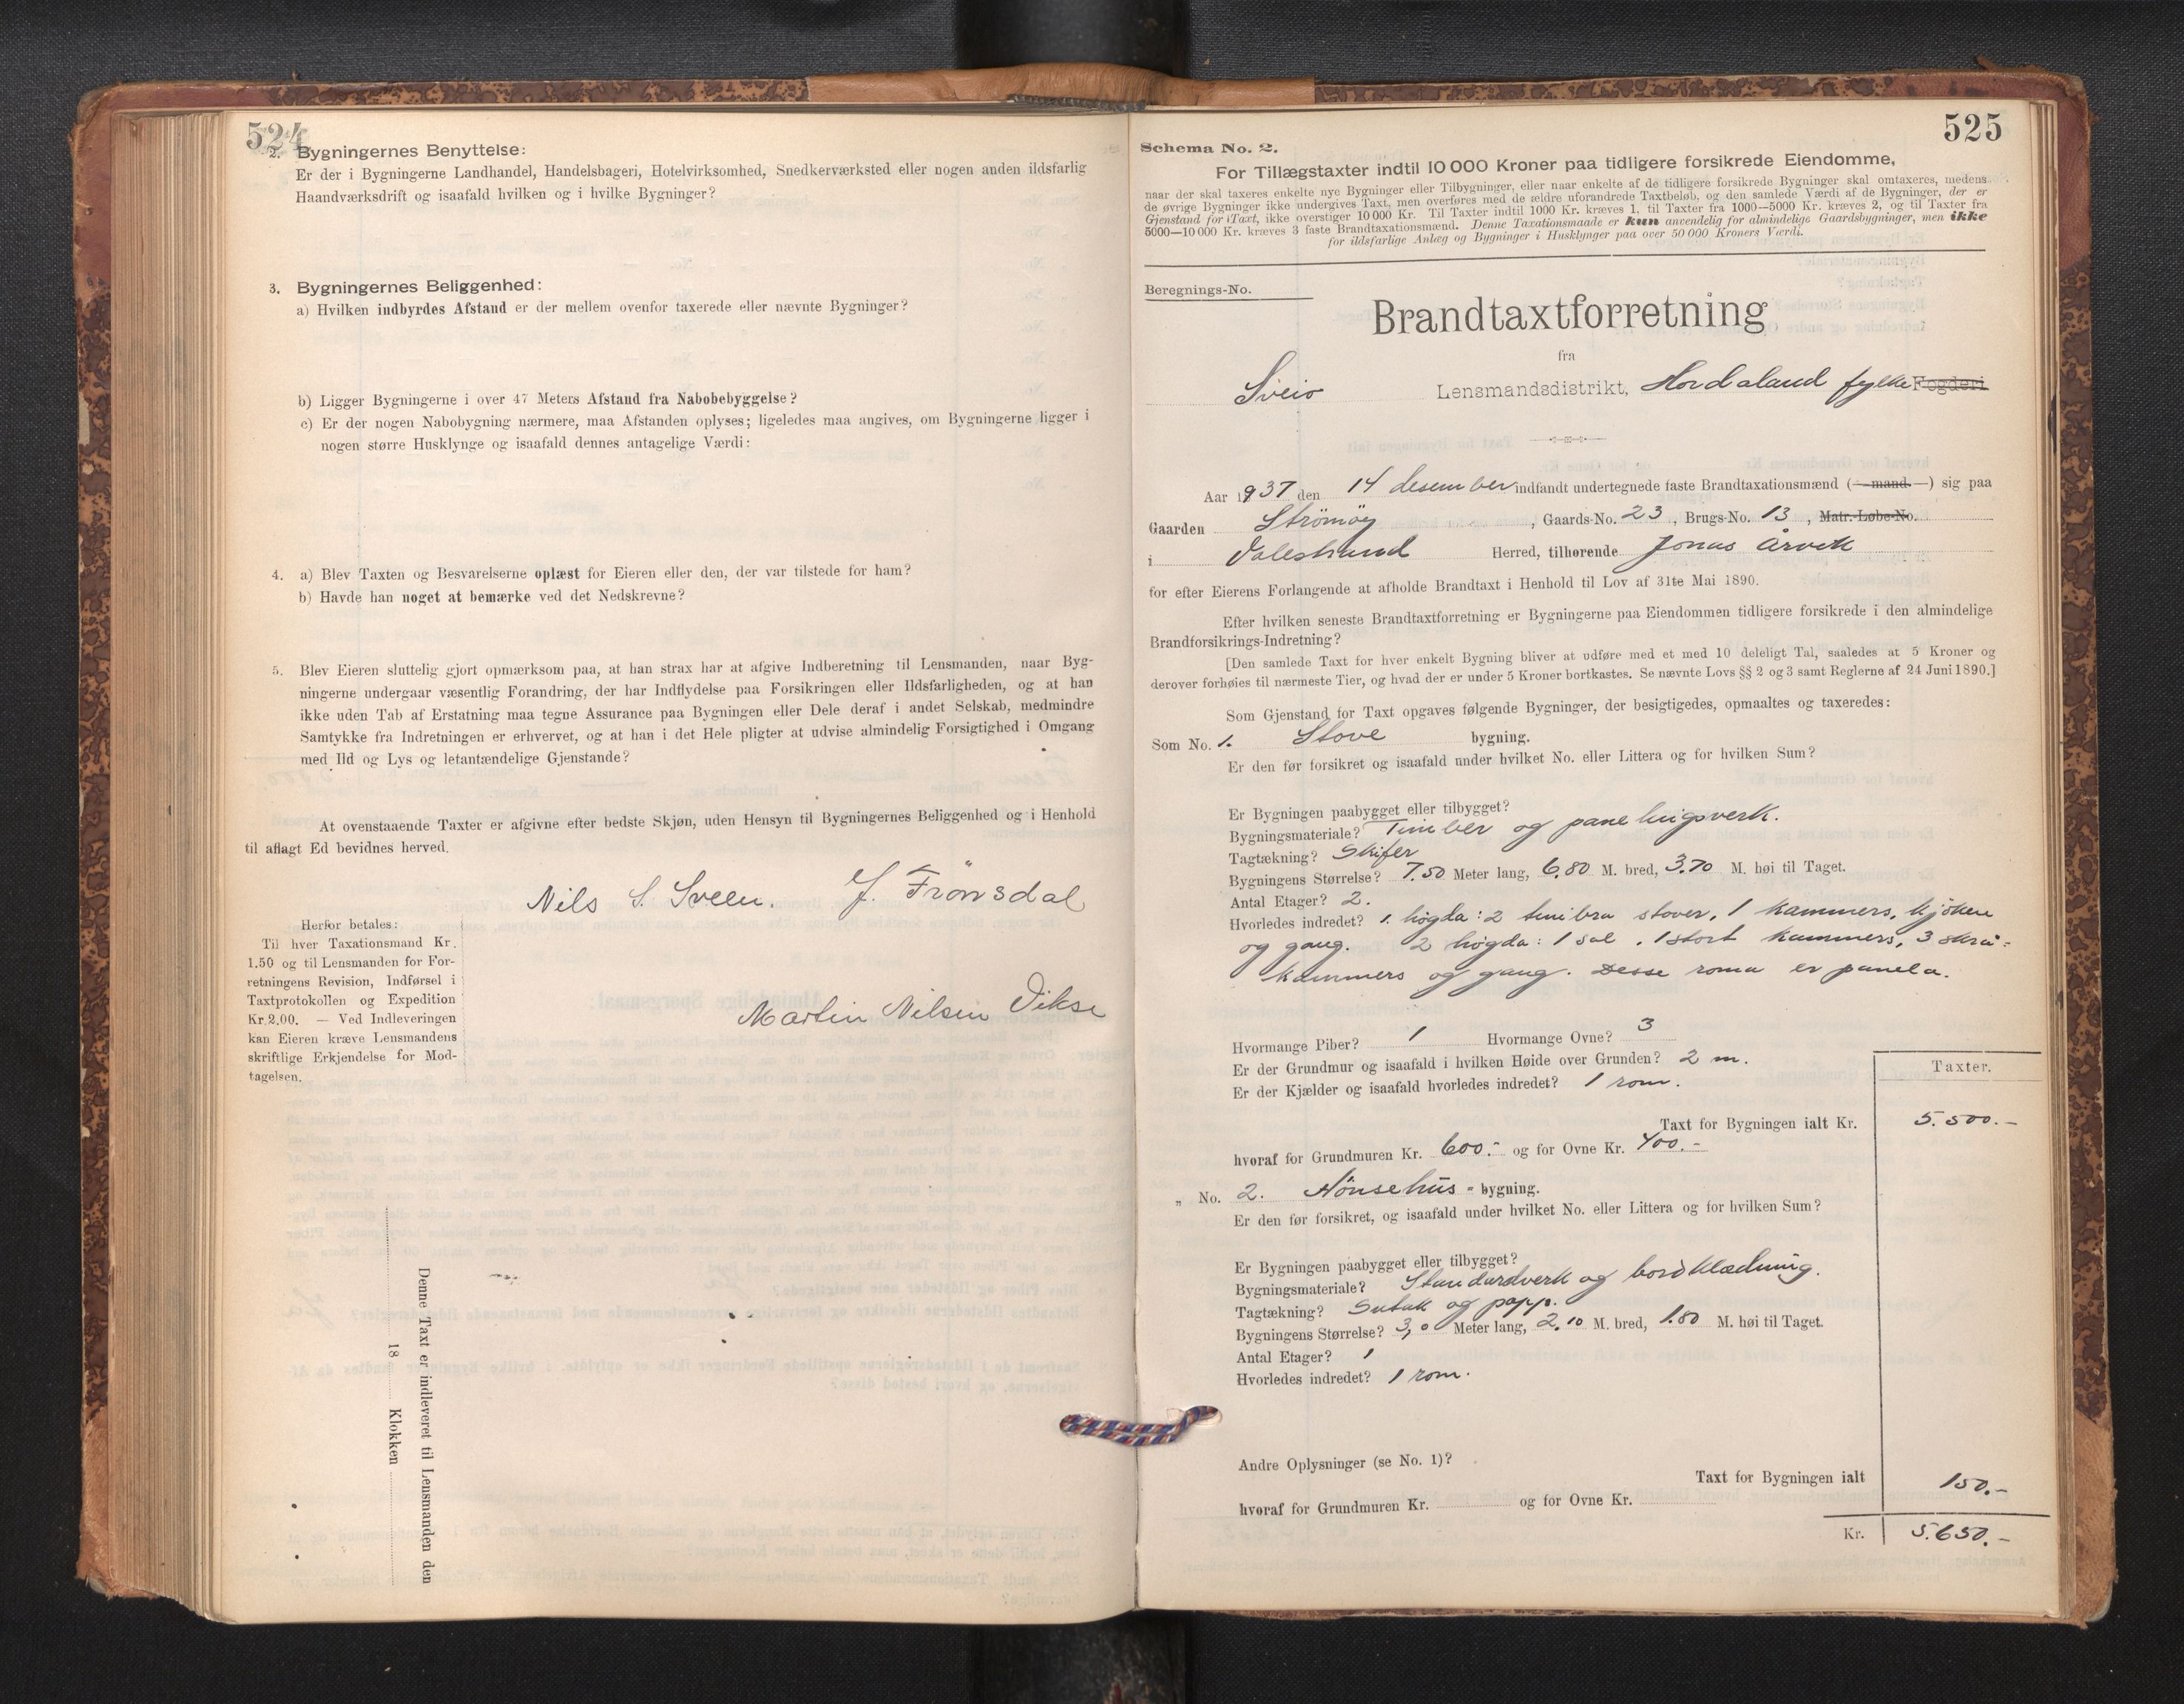 524
2. Bygningernes Benyttelse:
Er der i Bygningerne Landhandel, Handelsbageri, Hotelvirksomhed, Snedkerværksted eller nogen anden ildsfarlig
Haandværksdrift og isaafald hvilken og i hvilke Bygninger?
3. Bygningernes Beliggenhed:
a) Hvilken indbyrdes Afstand er der mellem ovenfor taxerede eller nævnte Bygninger?
b) Ligger Bygningerne i over 47 Meters Afstand fra Nabobebyggelse?
c) Er der nogen Nabobygning nærmere, maa Afstanden oplyses; ligeledes maa angives, om Bygningerne ligger i
nogen større Husklynge og isaafald dennes antagelige Værdi:
4. a) Blev Taxten og Besvarelserne oplæst for Eieren eller den, der var tilstede for ham?
b) Havde han noget at bemærke ved det Nedskrevne?
5. Blev Eieren sluttelig gjort opmærksom paa, at han strax har at afgive Indberetning til Lensmanden, naar Byg-
ningerne undergaar væsentlig Forandring, der har Indflydelse paa Forsikringen eller Ildsfarligheden, og at han
ikke uden Tab af Erstatning maa tegne Assurance paa Bygningen eller Dele deraf i andet Selskab, medmindre
Samtykke fra Indretningen er erhvervet, og at han i det Hele pligter at udvise almindelig Forsigtighed i Omgang
med Ild og Lys og letantændelige Gjenstande?
At ovenstaaende Taxter er afgivne efter bedste Skjøn, uden Hensyn til Bygningernes Beliggenhed og i Henhold
til aflagt Ed bevidnes herved.
Nils S. Sveen. J. Frönsdal
Martin Nilsen Vikse
Herfor betales:
Til hver Taxationsmand Kr.
1.50 og til Lensmanden for For-
retningens Revision, Indførsel i
Taxtprotokollen og Expedition
Kr. 2.00. — Ved Indleveringen
kan Eieren kræve Lensmandens
skriftlige Erkjendelse for Mod-
tagelsen.
Denne Taxt er indleveret til Lensmanden den
18 Klokken
525
Schema No. 2.
For Tillægstaxter indtil 10 000 Kroner paa tidligere forsikrede Eiendomme,
naar der skal taxeres enkelte nye Bygninger eller Tilbygninger, eller naar enkelte af de tidligere forsikrede Bygninger skal omtaxeres, medens
de øvrige Bygninger ikke undergives Taxt, men overføres med de ældre uforandrede Taxtbeløb, og den samlede Værdi af de Bygninger, der er
Gjenstand for Taxt, ikke overstiger 10 000 Kr. Til Taxter indtil 1000 Kr. kræves 1, til Taxter fra 1000—5000 Kr. kræves 2, og til Taxter fra
5000—10 000 Kr. kræves 3 faste Brandtaxationsmænd. Denne Taxationsmaade er kun anvendelig for almindelige Gaardsbygninger, men ikke
for ildsfarlige Anlæg og Bygninger i Husklynger paa over 50 000 Kroners Værdi.
Beregnings-No.
Brandtaxtforretning
fra
Sveio Lensmandsdistrikt, Hordaland fylke Fogderi
Aar 1937 den 14 desember indfandt undertegnede faste Brandtaxationsmænd (—mand.—) sig paa
Gaarden Strömöy, Gaards-No. 23, Brugs-No. 13, Matr.-Løbe-No.
i Valestrand Herred, tilhørende Jonas Årvik
for efter Eierens Forlangende at afholde Brandtaxt i Henhold til Lov af 31te Mai 1890.
Efter hvilken seneste Brandtaxtforretning er Bygningerne paa Eiendommen tidligere forsikrede i den almindelige
Brandforsikrings-Indretning?
[Den samlede Taxt for hver enkelt Bygning bliver at udføre med et med 10 deleligt Tal, saaledes at 5 Kroner og
derover forhøies til nærmeste Tier, og hvad der er under 5 Kroner bortkastes. Se nævnte Lovs §§ 2 og 3 samt Reglerne af 24 Juni 1890.]
Som Gjenstand for Taxt opgaves følgende Bygninger, der besigtigedes, opmaaltes og taxeredes:
Som No. 1. Stove bygning.
Er den før forsikret og isaafald under hvilket No. eller Littera og for hvilken Sum?
Er Bygningen paabygget eller tilbygget?
Bygningsmateriale? Timber og panelingsverk.
Tagtækning? Skifer
Bygningens Størrelse? 7.50 Meter lang, 6.80 M. bred, 3.70 M. høi til Taget.
Antal Etager? 2.
Hvorledes indredet? 1. högda: 2 timbra stover, 1 kammers, kjöken
og gang. 2 högda: 1 sal, 1 stort kammers, 3 skrå-
kammers og gang. Desse roma er panela.
Hvormange Piber? 1 Hvormange Ovne? 3
Er der Grundmur og isaafald i hvilken Høide over Grunden? 2 m.
Er der Kjælder og isaafald hvorledes indredet? 1 rom.
Taxter.
Taxt for Bygningen ialt Kr. 5.500.-
hvoraf for Grundmuren Kr. 600.- og for Ovne Kr. 400.-
" No. 2. Hönsehus - bygning.
Er den før forsikret, og isaafald under hvilket No. eller Littera og for hvilken Sum?
Er Bygningen paabygget eller tilbygget?
Bygningsmateriale? Standardverk og bordklædning.
Tagtækning? Sutak og papp.
Bygningens Størrelse? 3,0 Meter lang, 2.10 M. bred, 1.80 M. høi til Taget.
Antal Etager? 1
Hvorledes indredet? 1 rom.
Andre Oplysninger (se No. 1)?
Taxt for Bygningen ialt 150.-
hvoraf for Grundmuren Kr. og for Ovne Kr.
Kr. 5.650.-